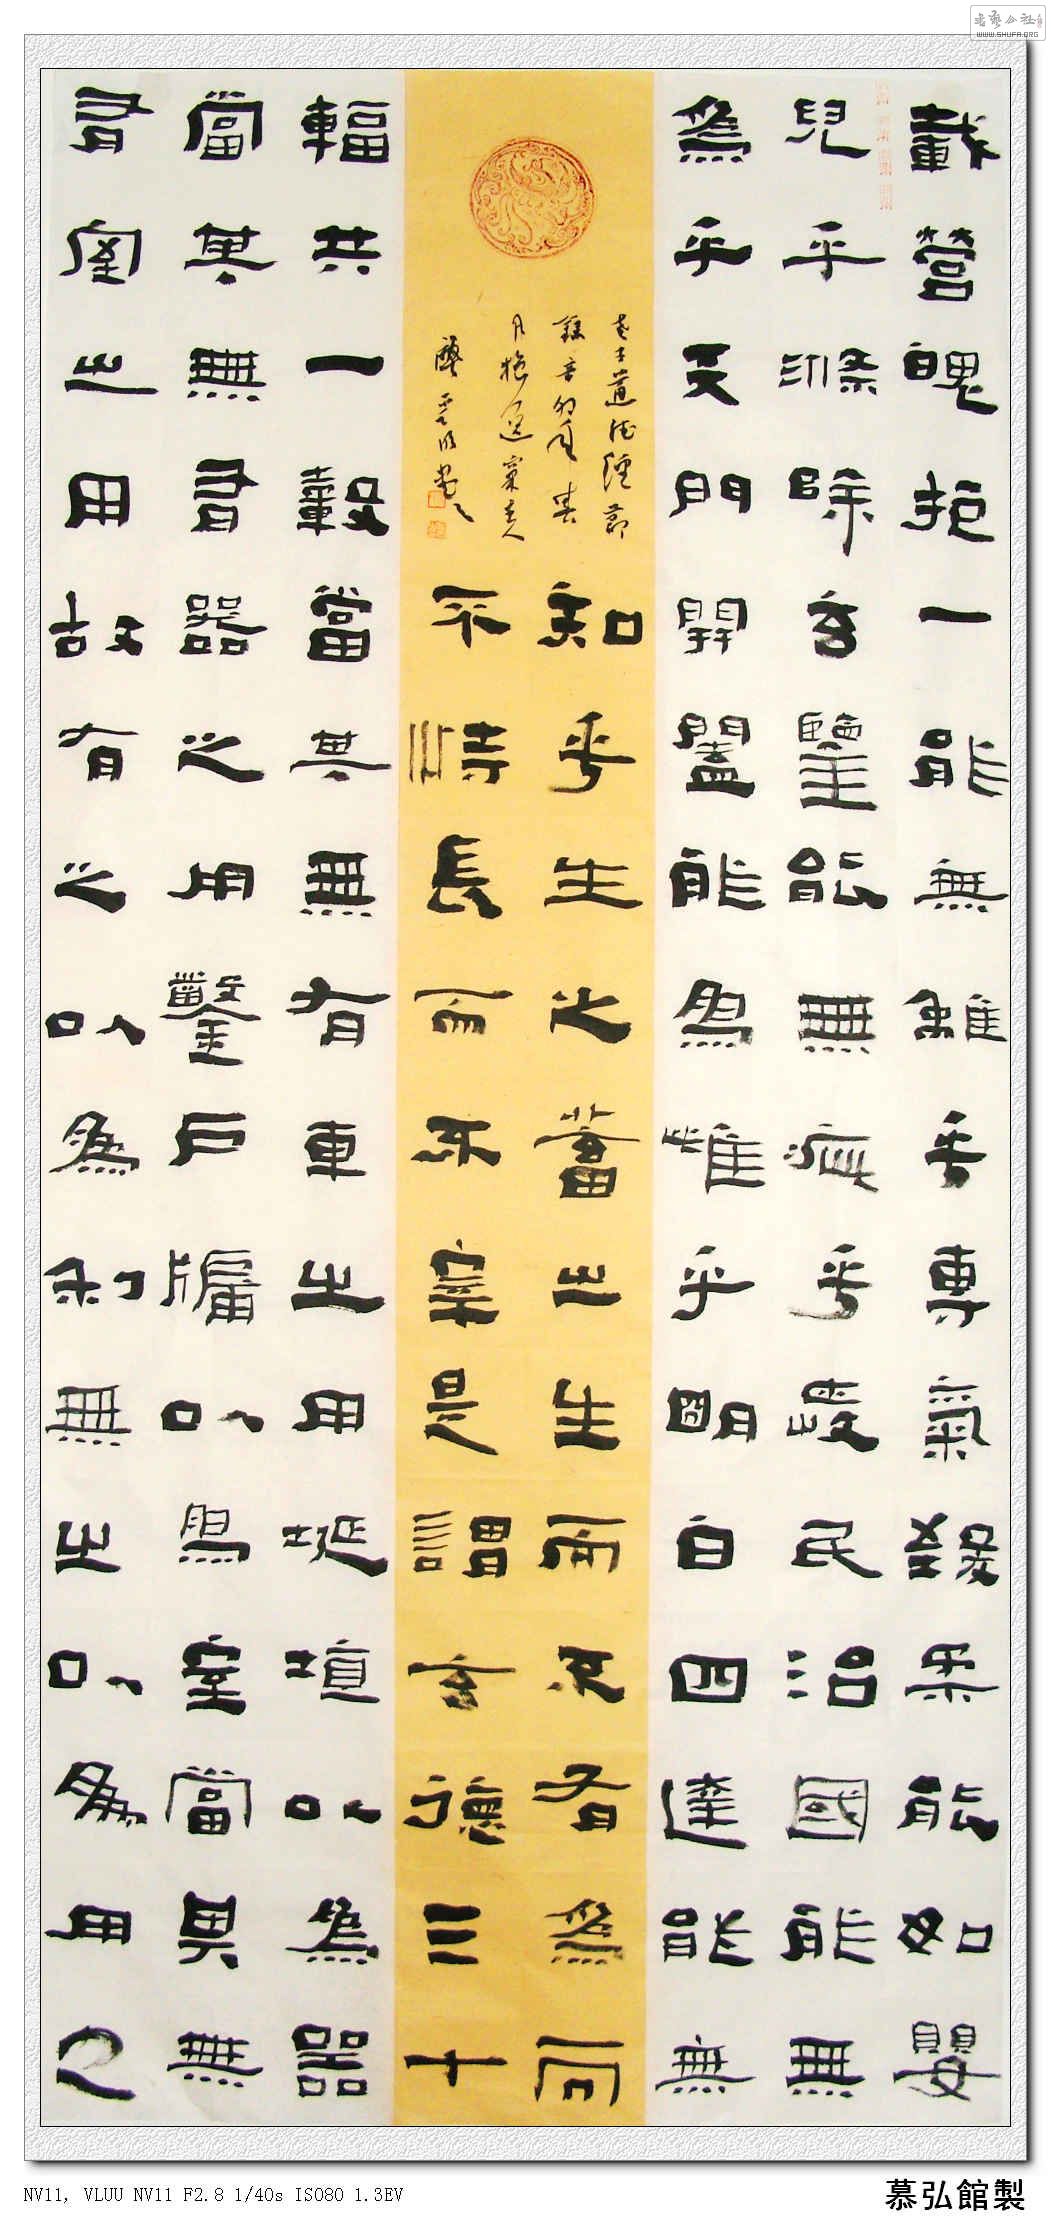 載營魄抱一能無離乎專氣致柔能如嬰
兒乎滌除玄鑒能無疵乎愛民治國能無
為乎天門開闔能為雌乎明白四達能無
老子道德經節
錄辛卯年春
知乎生之蓄之生而不有為而
不恃長而不宰是謂玄德三十
輻共一轂當其無有車之用埏埴以為器
當其無有器之用鑿戶牖以為室當其無
有室之用故有之以為利無之以為用
WWW.SHUFA.ORG
NV11, VLUU NV11 F2.8 1/40s ISO80 1.3EV
慕弘館製